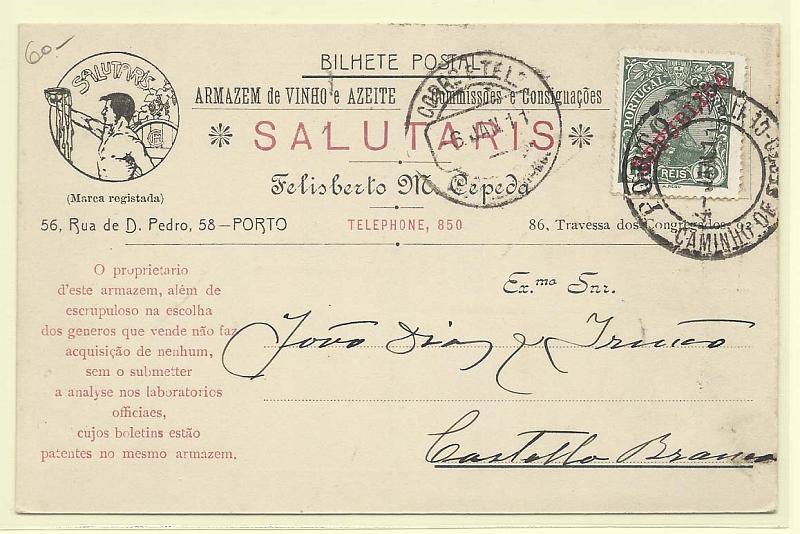 60-
BILHETE POSTAL
SALUTARIS
ARMAZEM de VINHO e AZEITE
Commissões e Consignações
SALUTARIS
(Marca registada)
Felisberto M. Cepeda
56, Rua de D. Pedro, 58—PORTO
TELEPHONE, 850
86, Travessa dos Congregados,
CORRº E TELº
6 JAN 11
PORTUGAL CORREIOS
REPUBLICA
REIS
CAMINHO DE
O proprietario
d'este armazem, além de
escrupuloso na escolha
dos generos que vende não faz
acquisição de nenhum,
sem o submetter
a analyse nos laboratorios
officiaes,
cujos boletins estão
patentes no mesmo armazem.
Ex.mo Snr.
João Dias & Irmão
Castello Branco